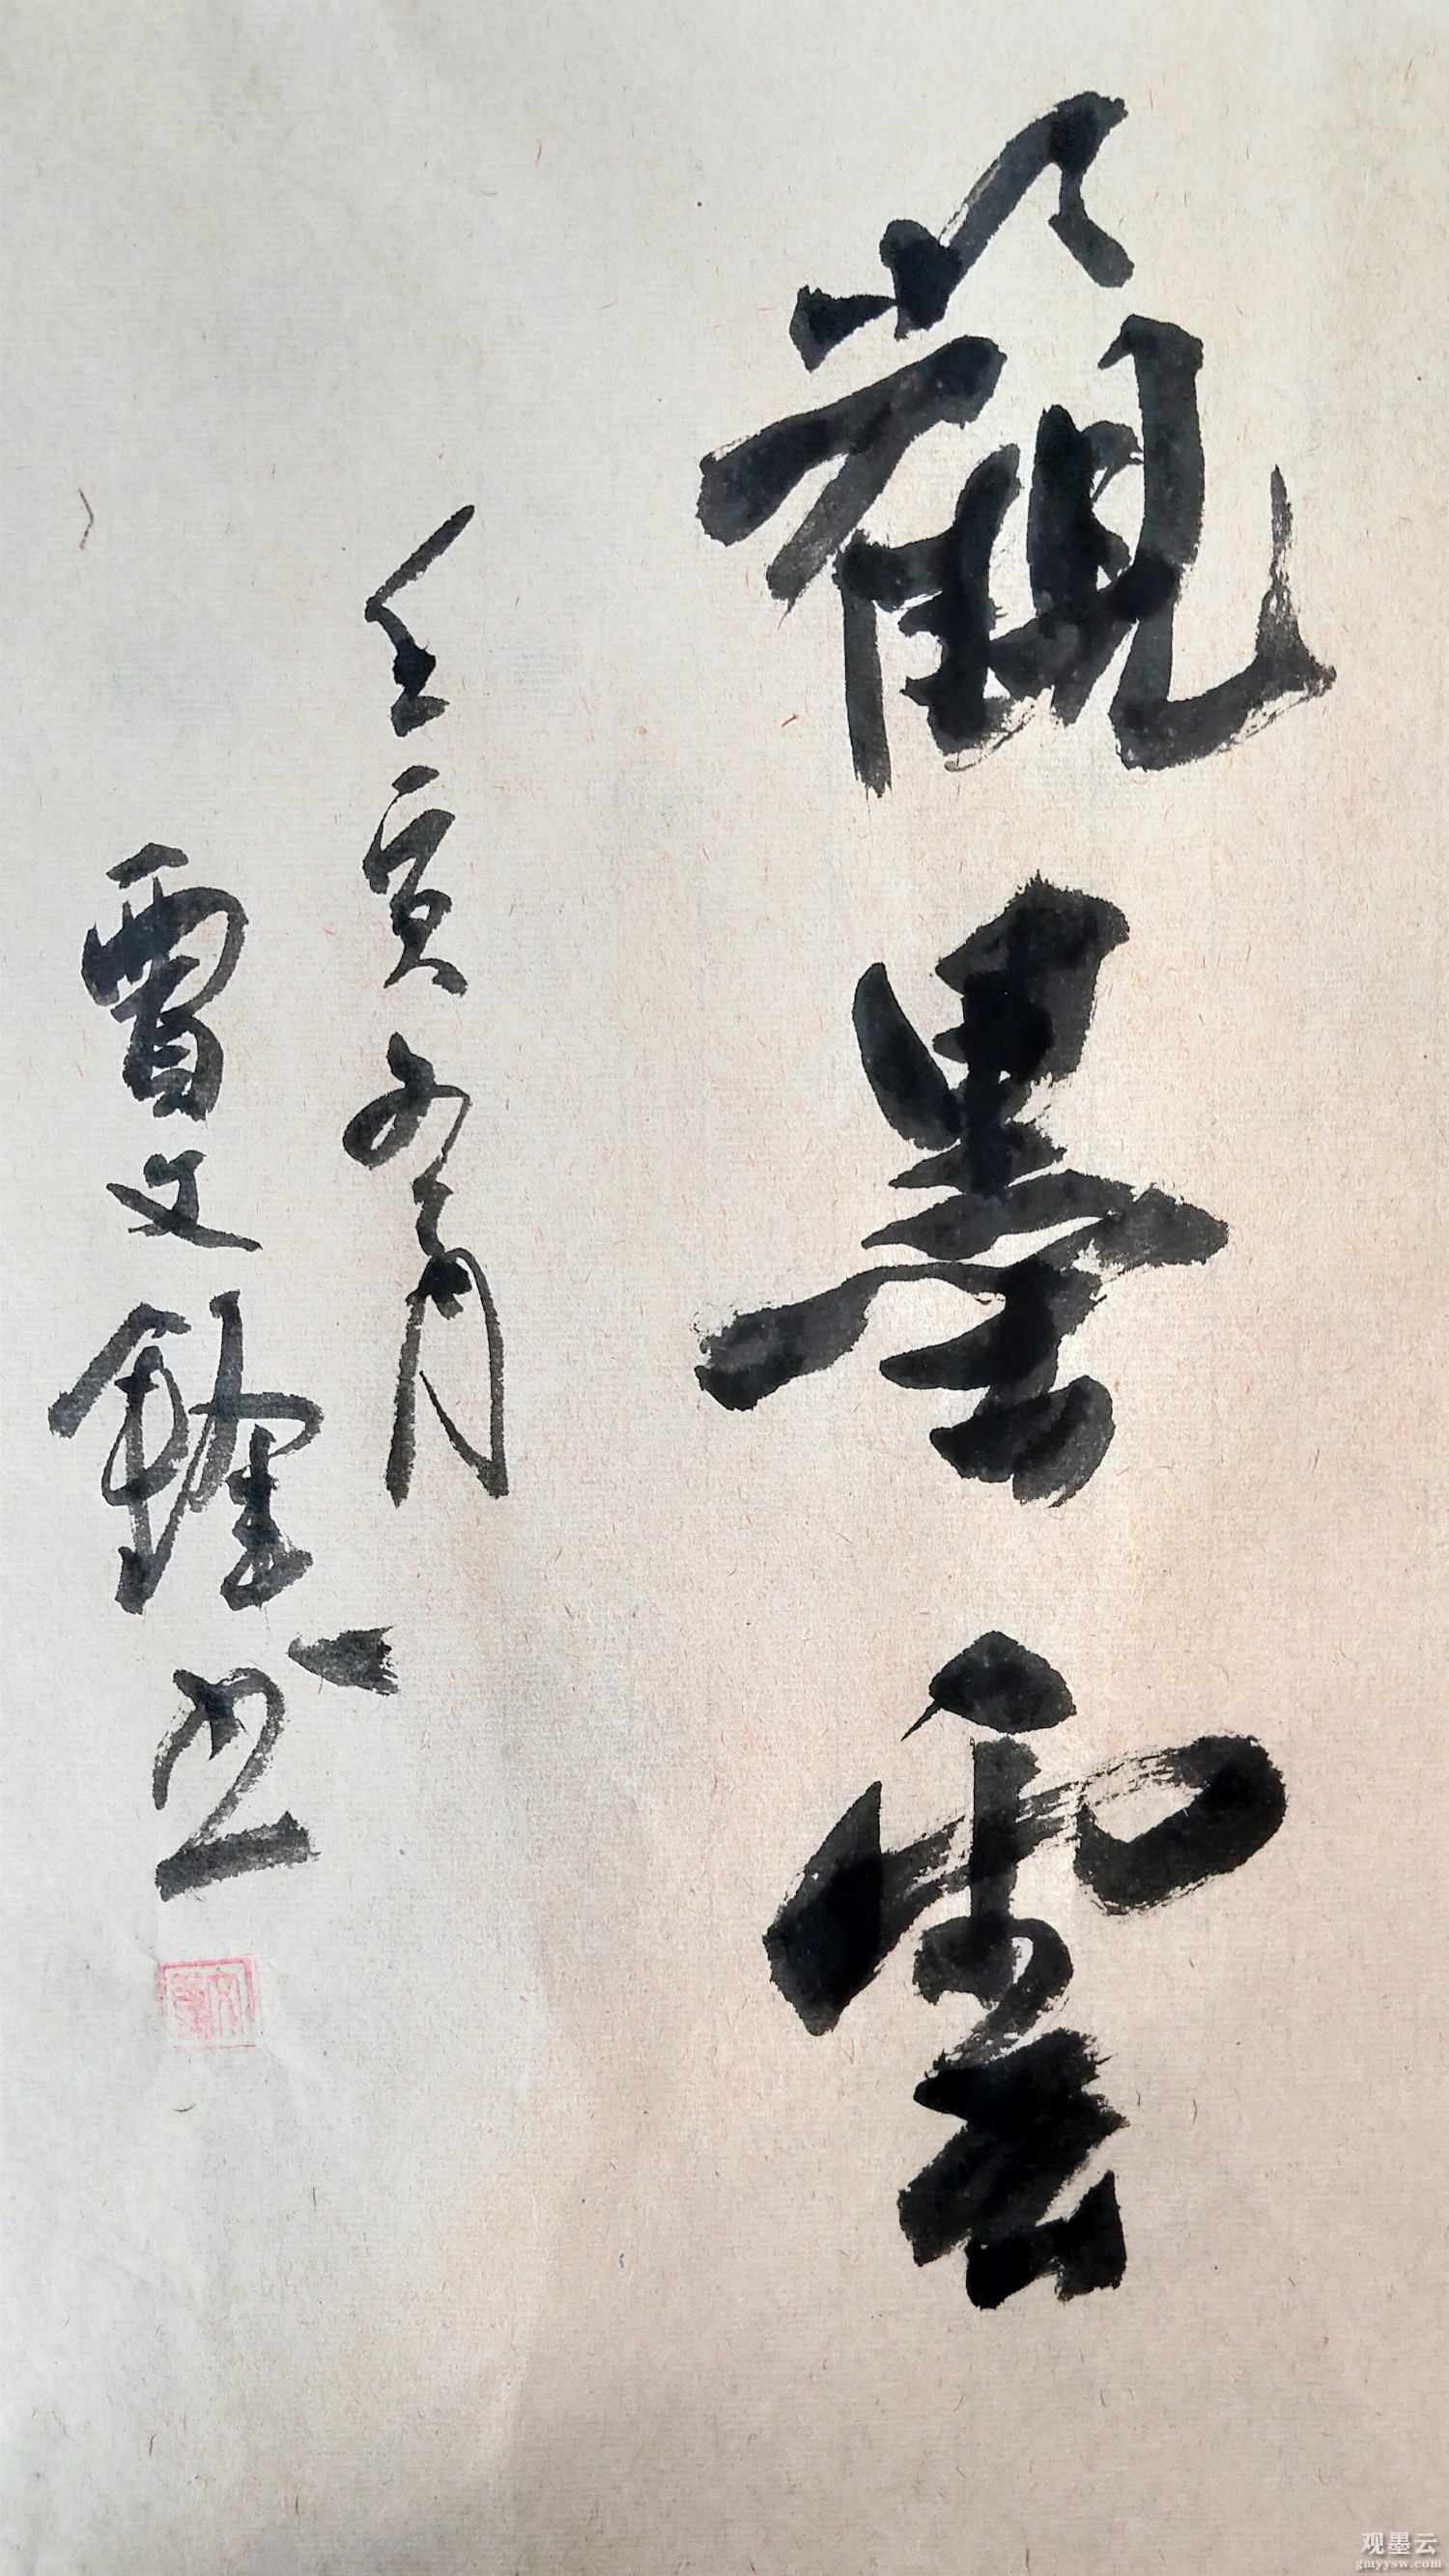 觀墨雲
壬寅 月
賈文 书
观墨云
gmyysw.com